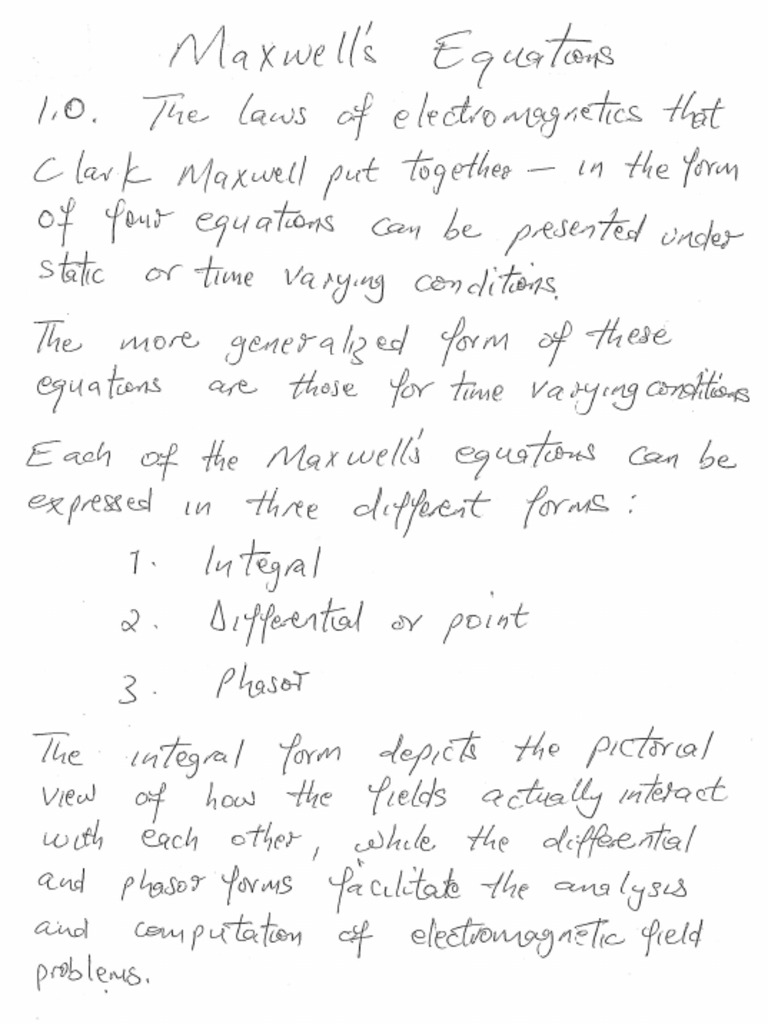 Maxwell's Equations
1.0. The laws of electromagnetics that
Clark Maxwell put together – in the form
of four equations can be presented under
static or time varying conditions.
The more generalized form of these
equations are those for time varying conditions
Each of the Maxwell's equations can be
expressed in three different forms:
1. Integral
2. Differential or point
3. Phasor
The integral form depicts the pictorial
view of how the fields actually interact
with each other, while the differential
and phasor forms facilitate the analysis
and computation of electromagnetic field
problems.